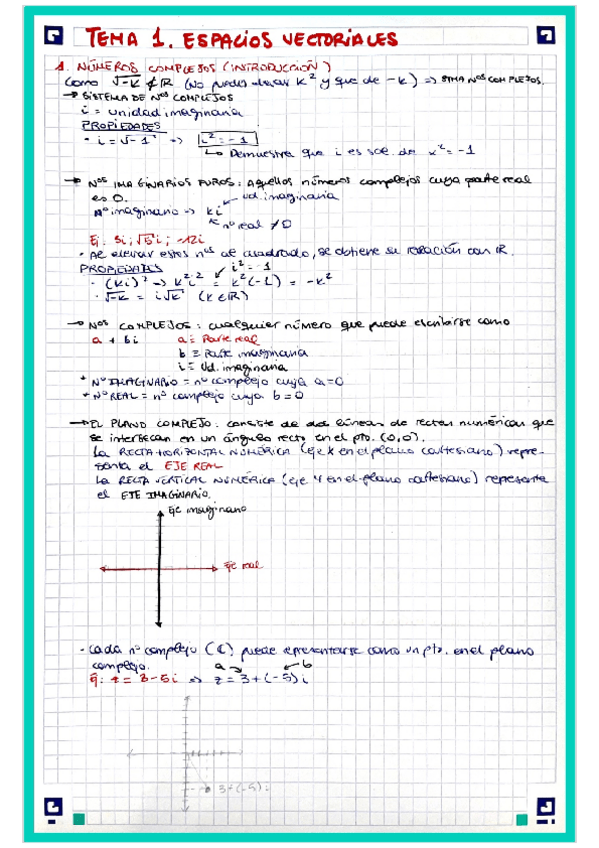 TEMA 1. ESPACIOS VECTORIALES
1. NÚMEROS COMPLEJOS (INTRODUCCIÓN)
Como √-K ∉ ℝ (No puedes elevar K² y que de -K) => STMA Nos COMPLEJOS.
→ SISTEMA DE Nos COMPLEJOS
i = unidad imaginaria
PROPIEDADES
· i = √-1 => i² = -1
↳ Demuestra que i es sol. de x² = -1
→ Nos IMAGINARIOS PUROS: Aquellos números complejos cuya parte real
es 0.
Nº imaginario => Ki ← ud. imaginaria
nº real ≠ 0
Ej: 5i; √5 i; -12i
· Al elevar estos nos al cuadrado, se obtiene su relación con ℝ.
PROPIEDADES i² = -1
· (Ki)² => K² i² = K² (-1) = -K²
· √-K = i√K (K∈ℝ)
→ Nos COMPLEJOS: cualquier número que puede escribirse como
a + bi a ≡ Parte real
b ≡ Parte imaginaria
i ≡ Ud. imaginaria
* Nº IMAGINARIO = nº complejo cuya a=0
* Nº REAL = nº complejo cuya b=0
→ EL PLANO COMPLEJO: consiste de dos líneas de rectas numéricas que
se intersecan en un ángulo recto en el pto. (0,0).
La RECTA HORIZONTAL NUMÉRICA (eje X en el plano cartesiano) repre-
senta el EJE REAL
La RECTA VERTICAL NUMÉRICA (eje Y en el plano cartesiano) representa
el EJE IMAGINARIO.
Eje imaginario
Eje real
· Cada nº complejo (ℂ) puede representarse como un pto. en el plano
complejo. a b
Ej: z = 3-5i => z = 3+(-5)i
3+(-5)i